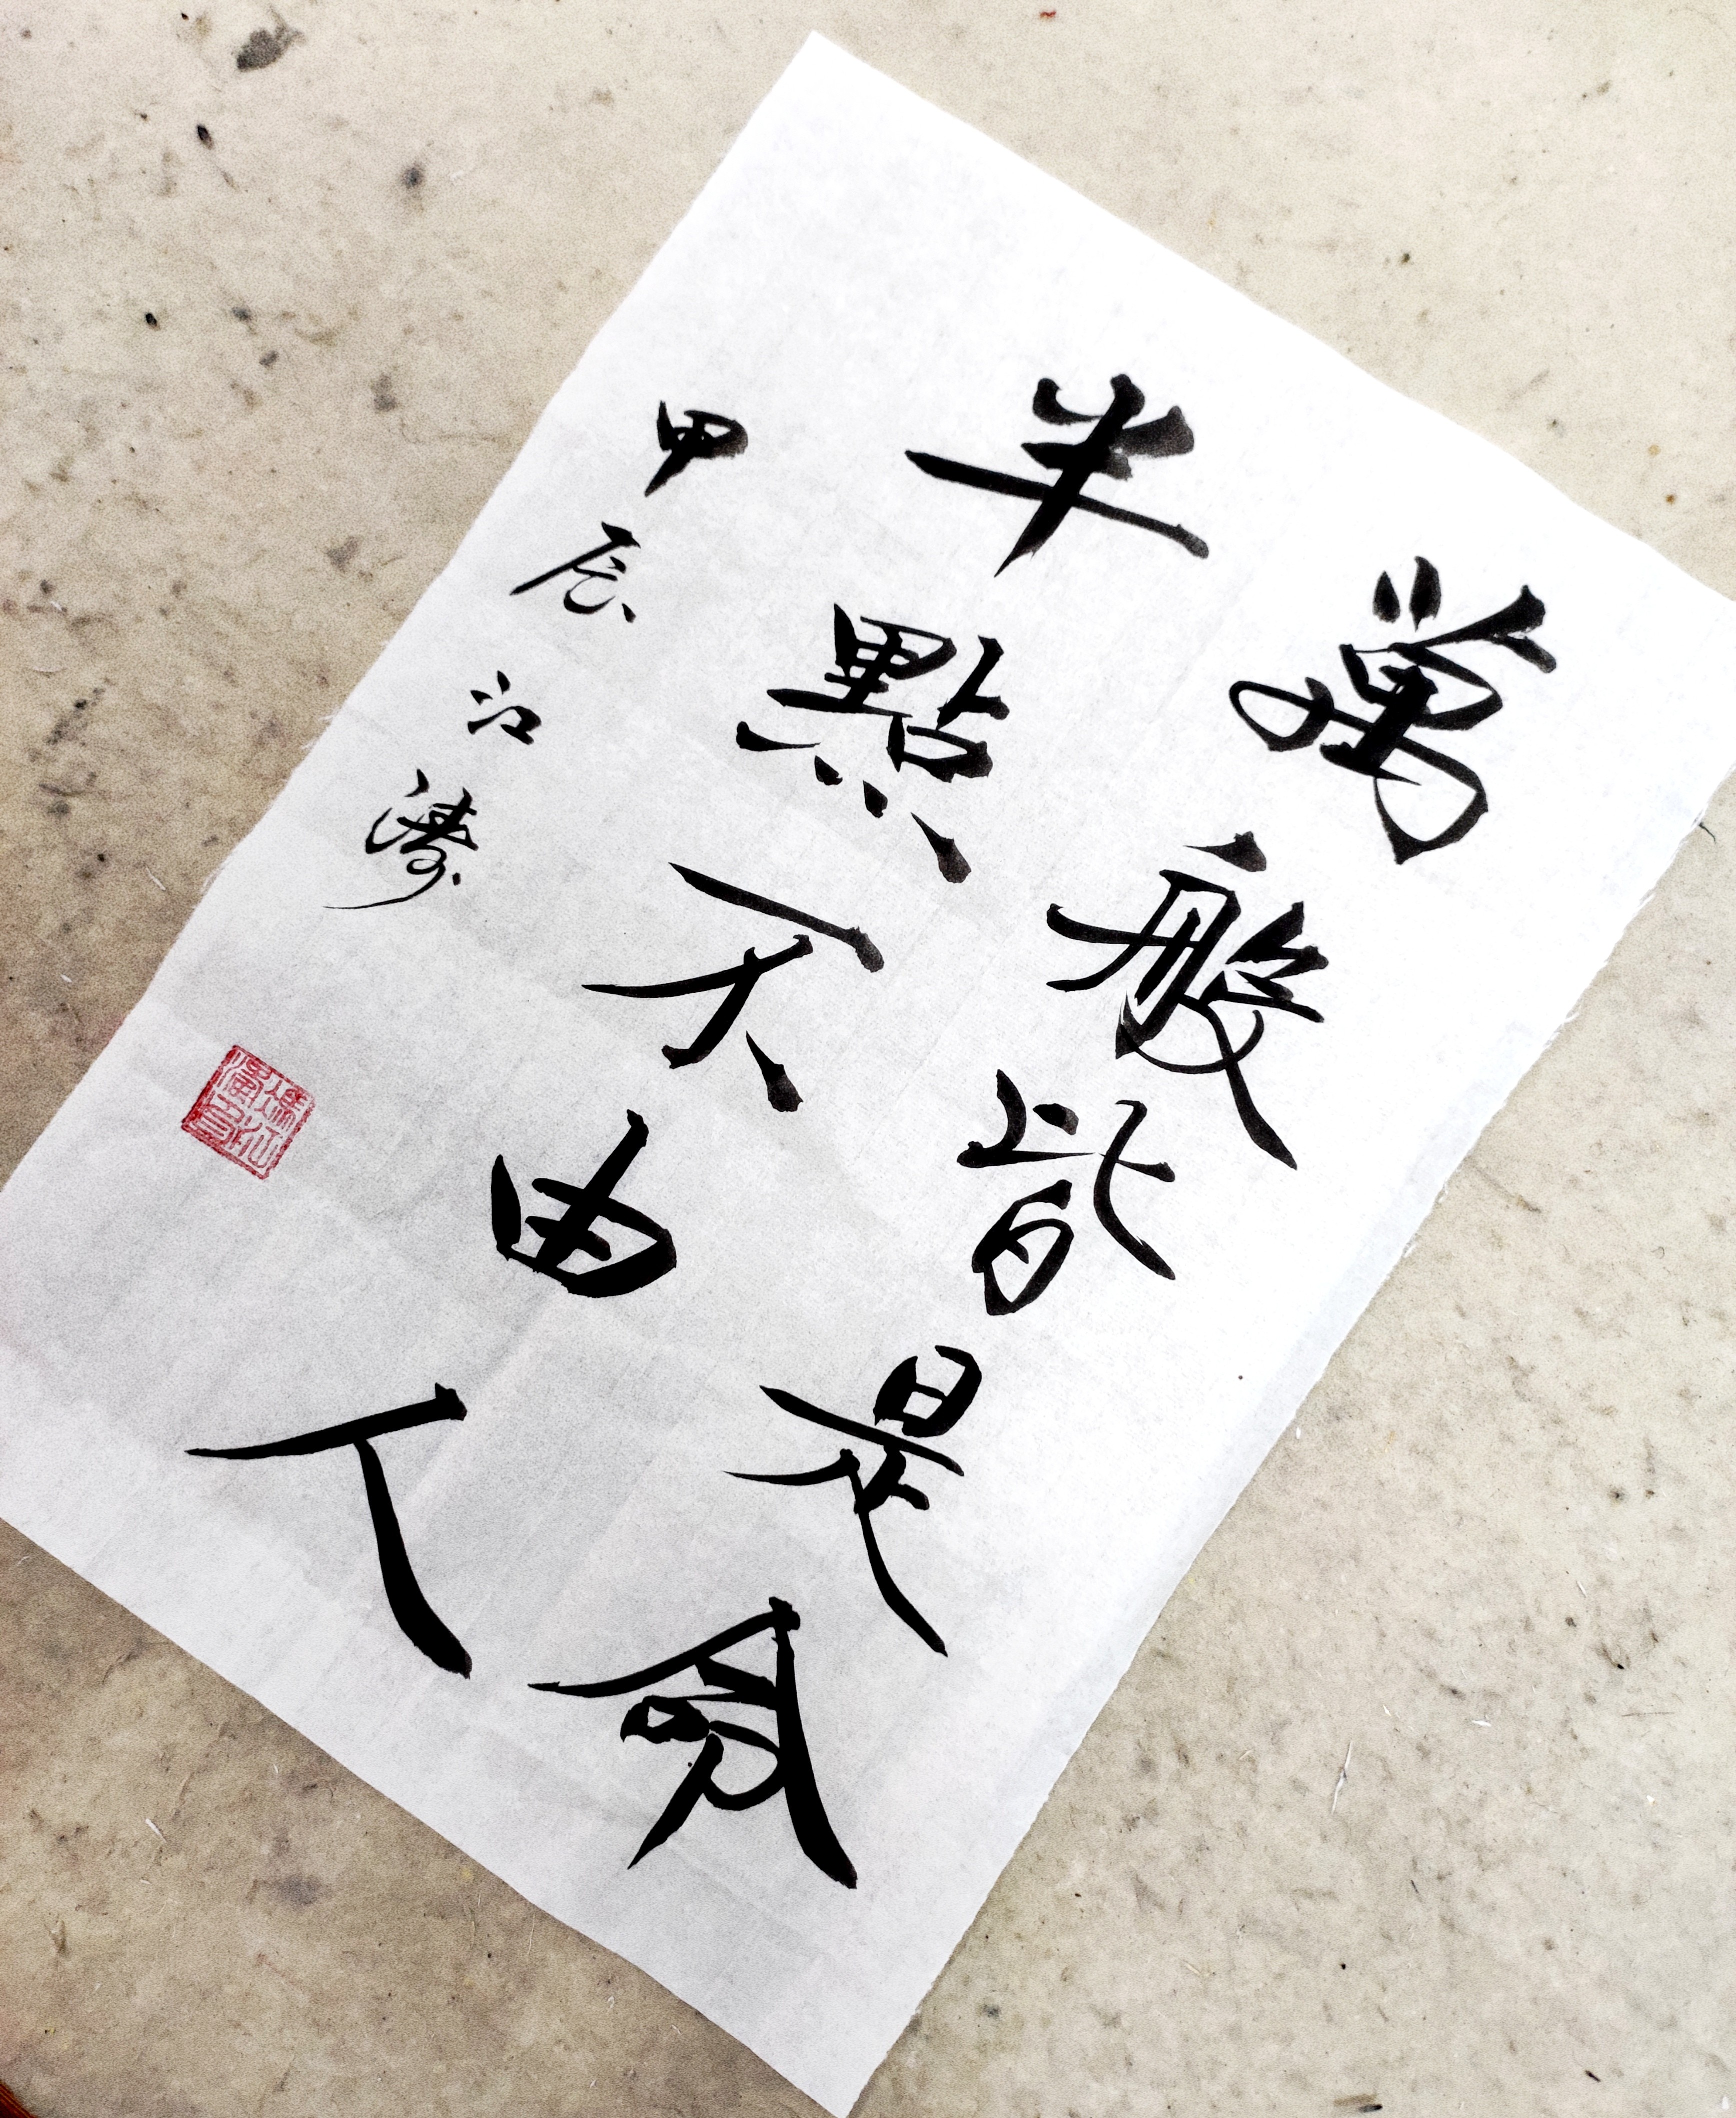 萬般皆是命
半點不由人
甲辰江濤